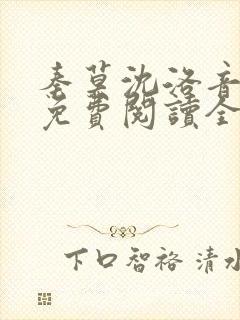 秦莫沈洛音
免費閱讀全
下口智裕 清水